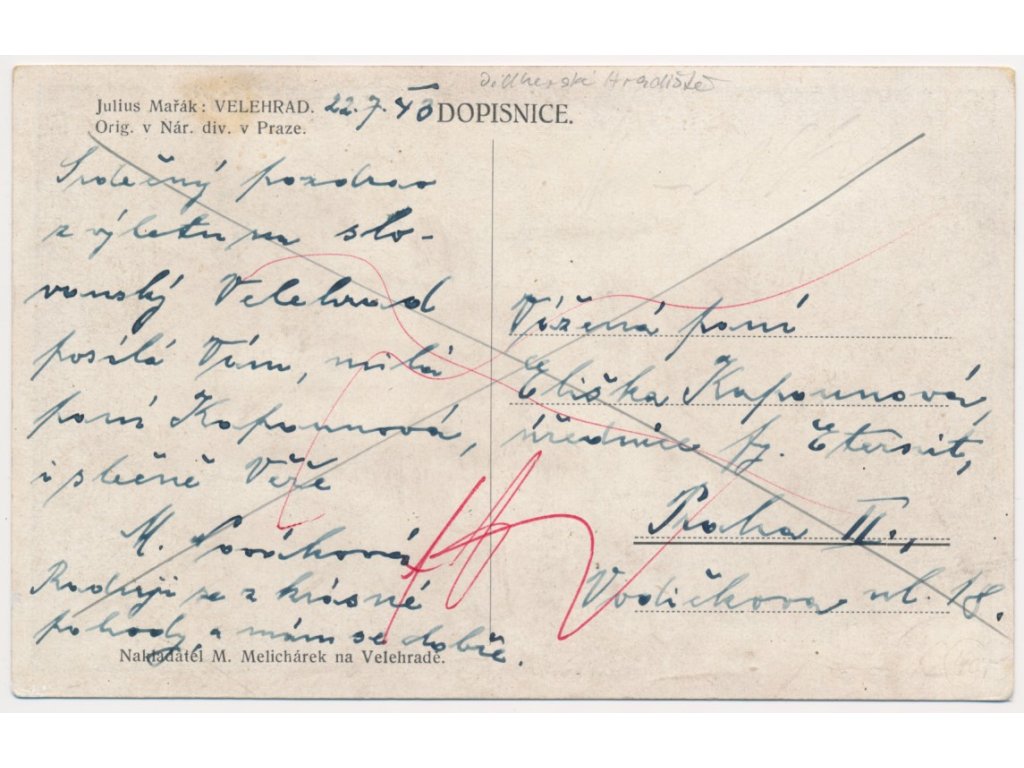 Hradiště
Julius Mařák: VELEHRAD.
Orig. v Nár. div. v Praze.
22.7.43
DOPISNICE.
Srdečný pozdrav
z výletu na slo-
vanský Velehrad
posílá Vám, milá
paní Kapounová,
i slečně Věře
M. Nováková
Raduji se z krásné
pohody a mám se dobře.
Nakladatel M. Melichárek na Velehradě.
Vážená paní
Eliška Kapounová,
úřednice fy. Eternit,
Praha II.,
Vodičkova ul. 18.